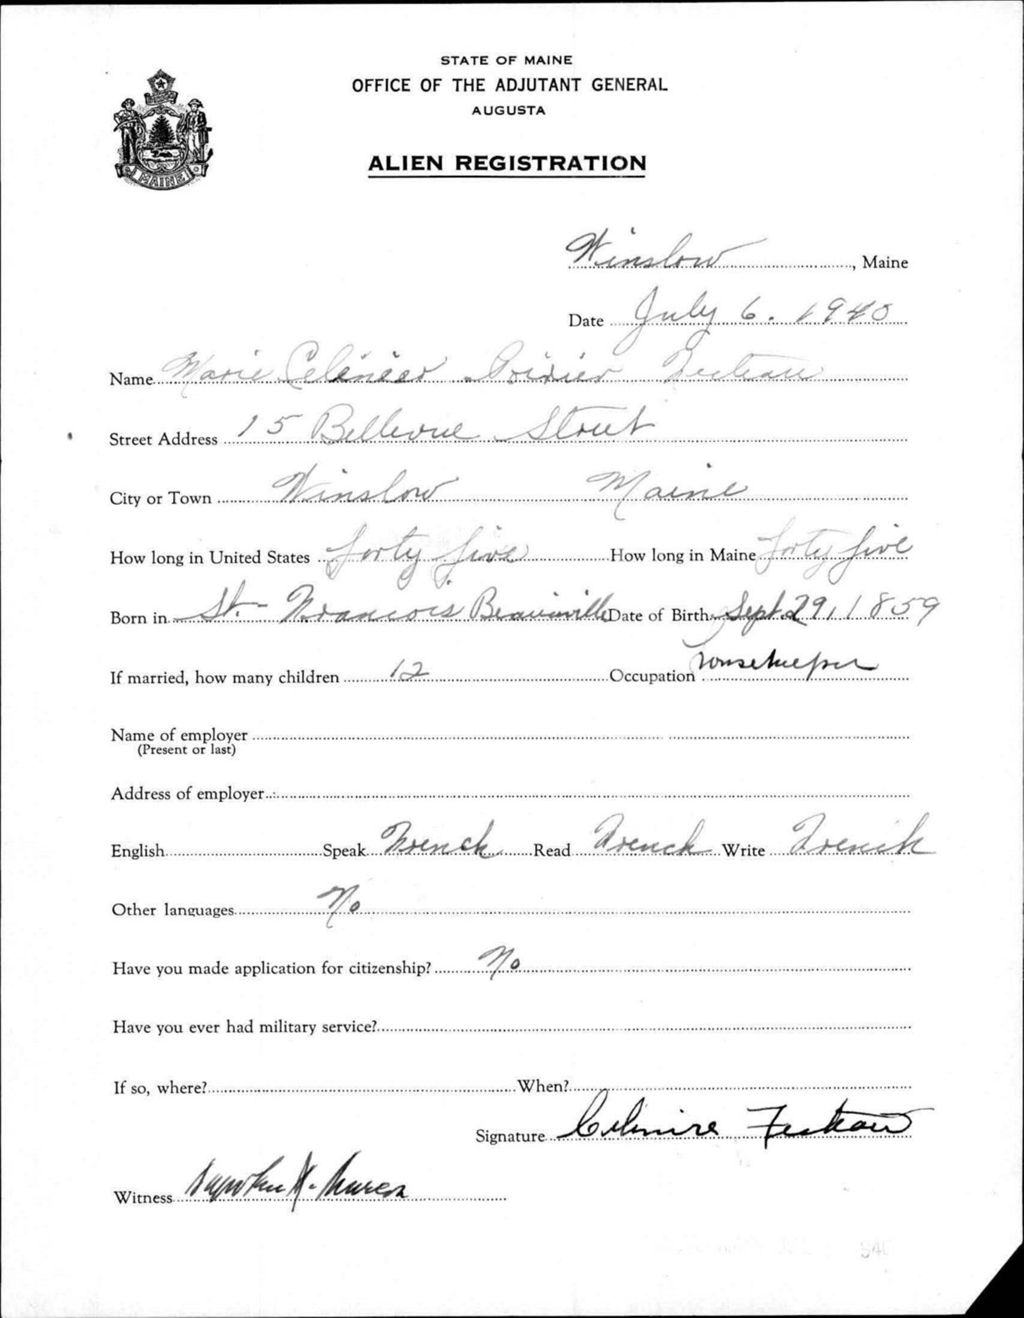 STATE OF MAINE
OFFICE OF THE ADJUTANT GENERAL
AUGUSTA
MAINE
ALIEN REGISTRATION
Winslow, Maine
Date July 6. 1940
Name Marie Poirier
Street Address 15 Bellevue Street
City or Town Winslow Maine
How long in United States forty five How long in Maine forty five
Born in St-Francois Beauceville Date of Birth Sept. 29, 1859
If married, how many children 12 Occupation housekeeper
Name of employer
(Present or last)
Address of employer
English Speak French Read French Write French
Other languages No
Have you made application for citizenship? No
Have you ever had military service?
If so, where? When?
Signature
Witness